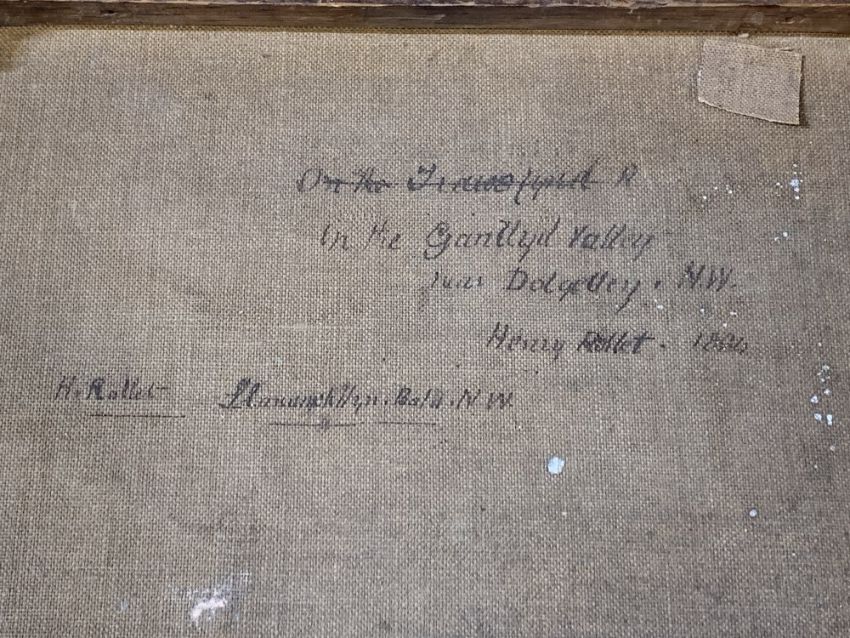 On the Trawsfynd R
In the Ganllyd Valley
near Dolgelley. N.W.
Henry Rollet.
H. Rollet Bala. N.W.